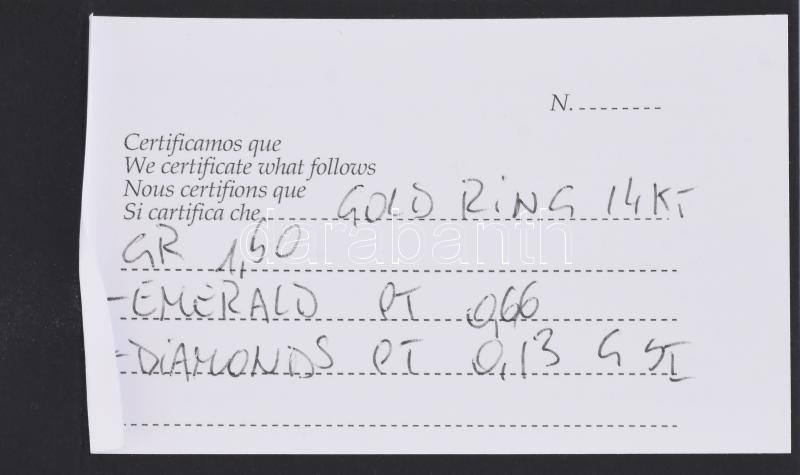 N.
Certificamos que
We certificate what follows
Nous certifions que
Si cartifica che GOLD RING 14 KT
GR 1,50
darabanth
-EMERALD PT 0,66
-DIAMONDS PT 0,13 G SI